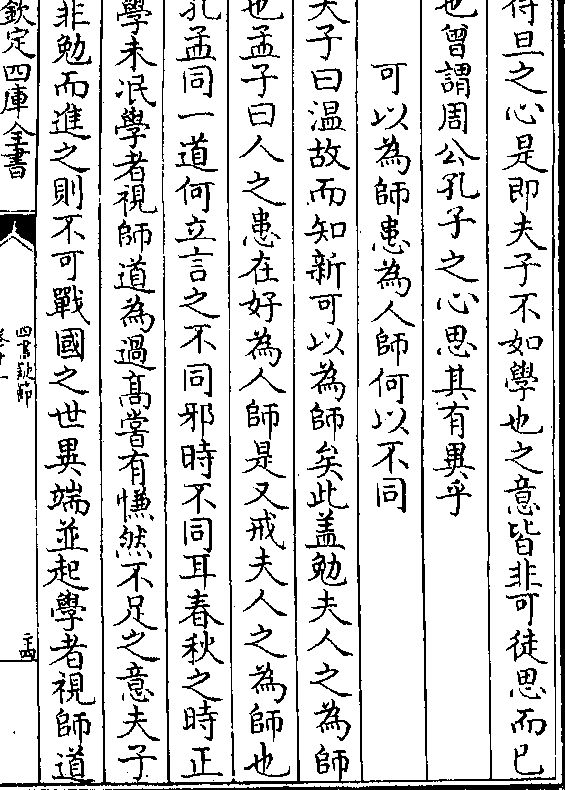 待旦之心是即夫子不如學也之意皆非可徒思而已
也曾謂周公孔子之心思其有異乎
可以為師患為人師何以不同
夫子曰温故而知新可以為師矣此盖勉夫人之為師
也孟子曰人之患在好為人師是又戒夫人之為師也
孔孟同一道何立言之不同邪時不同耳春秋之時正
學未泯學者視師道為過高嘗有慊然不足之意夫子
非勉而進之則不可戰國之世異端並起學者視師道
欽定四庫全書
四書疑節
卷十一